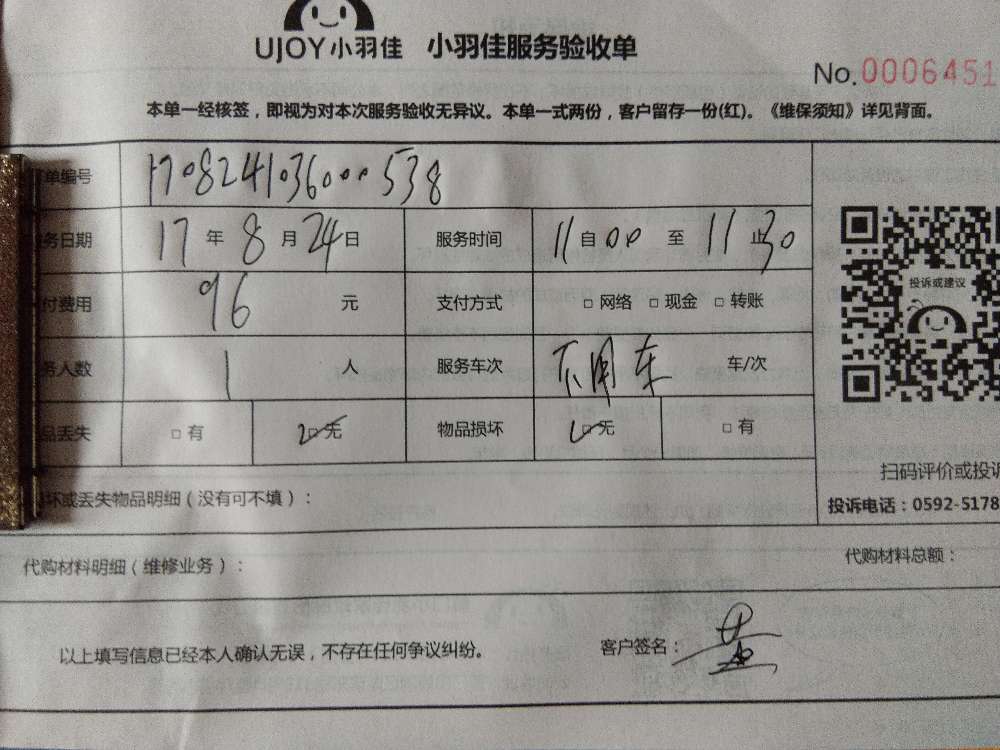 UJOY小羽佳 小羽佳服务验收单
No.0006451
本单一经核签，即视为对本次服务验收无异议。本单一式两份，客户留存一份(红)。《维保须知》详见背面。
单编号 1708241036000538
务日期 17年8月24日 服务时间 11自00至11止30
付费用 96元 支付方式 □网络 □现金 □转账
务人数 1人 服务车次 不用车 车/次
品丢失 □有 □无 物品损坏 □无 □有
投诉或建议
扫码评价或投诉
坏或丢失物品明细（没有可不填）：
投诉电话：0592-5178
代购材料明细（维修业务）： 代购材料总额：
以上填写信息已经本人确认无误，不存在任何争议纠纷。 客户签名：